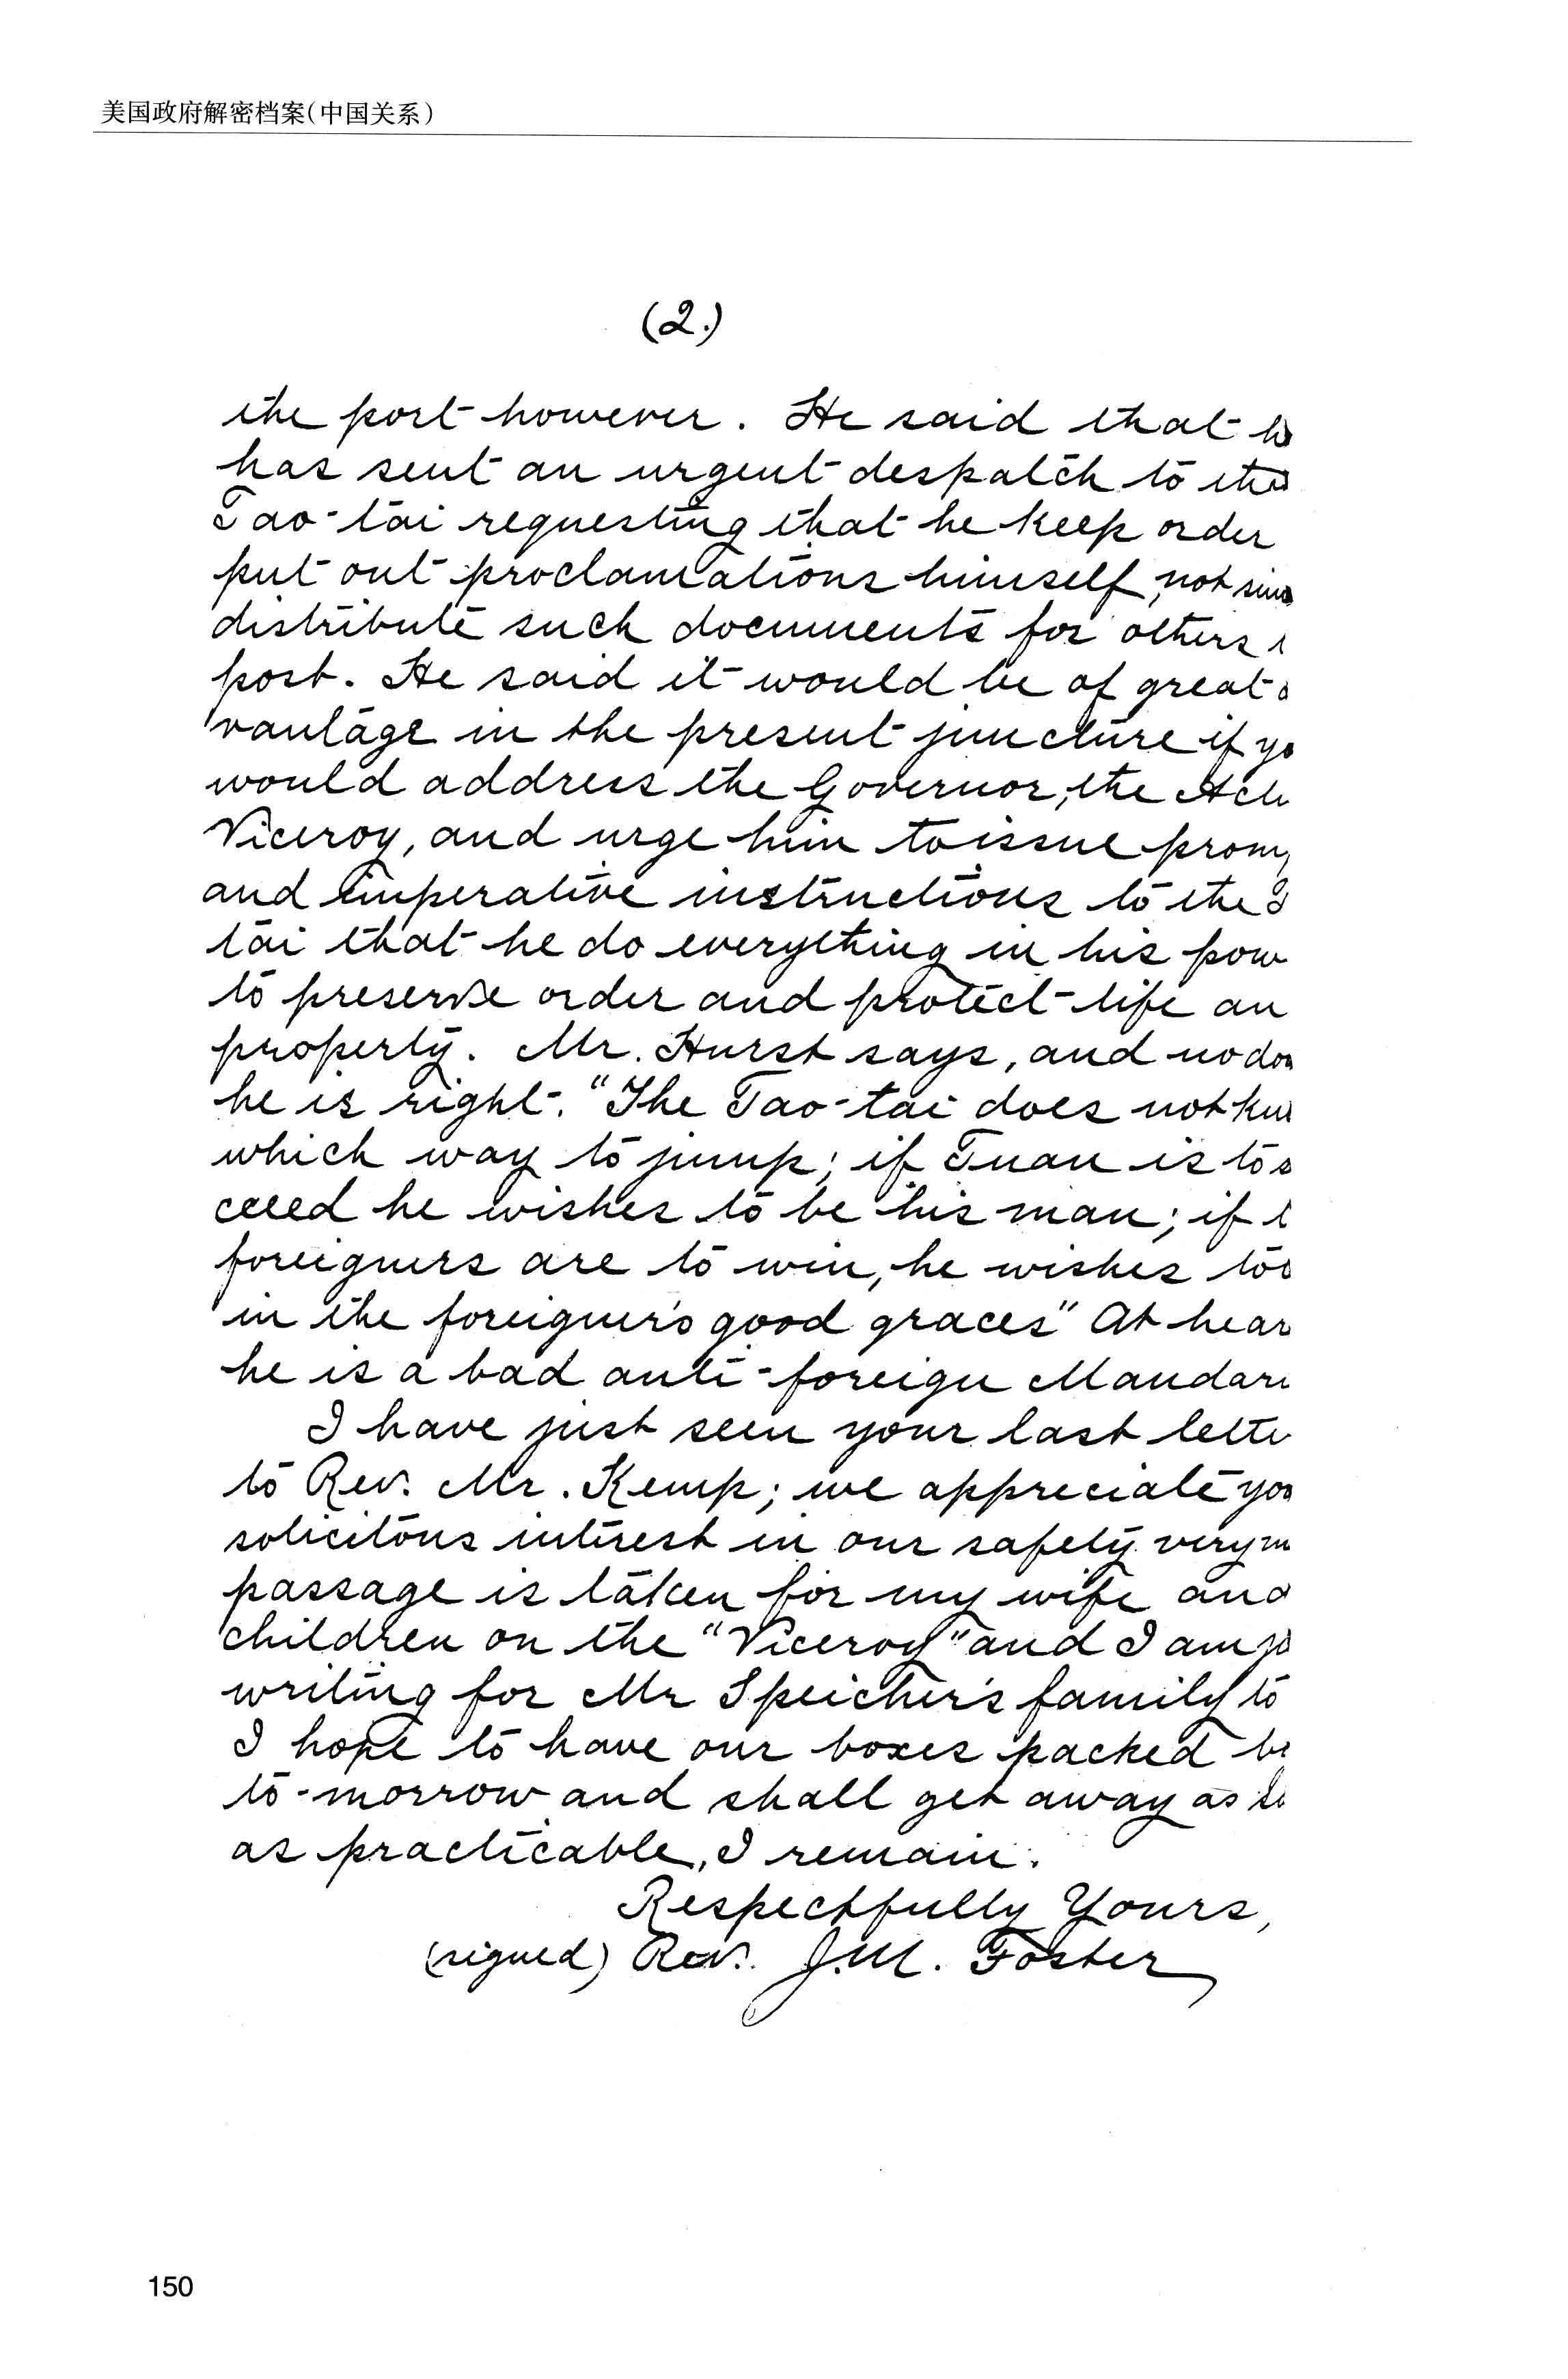 美国政府解密档案(中国关系)
(2.)
the port however. He said that h
has sent an urgent despatch to the
Tao-tai requesting that he keep order
put out proclamations himself, not sim
distribute such documents for others
post. He said it would be of great a
vantage in the present juncture if yo
would address the Governor, the Acti
Viceroy, and urge him to issue prom
and imperative instructions to the T
tai that he do everything in his pow
to preserve order and protect life an
property. Mr. Hurst says, and no dou
he is right. "The Tao-tai does not kn
which way to jump; if Tuan is to s
cceed he wishes to be his man; if t
foreigners are to win, he wishes to b
in the foreigner's good graces" At hear
he is a bad anti-foreign Mandari
I have just seen your last lette
to Rev. Mr. Kemp; we appreciate you
solicitous interest in our safety very m
passage is taken for my wife and
children on the "Viceroy" and I am
writing for Mr Speicher's family to
I hope to have our boxes packed b
to-morrow and shall get away as so
as practicable, I remain.
Respectfully Yours,
(signed) Rev. J.M. Foster
150